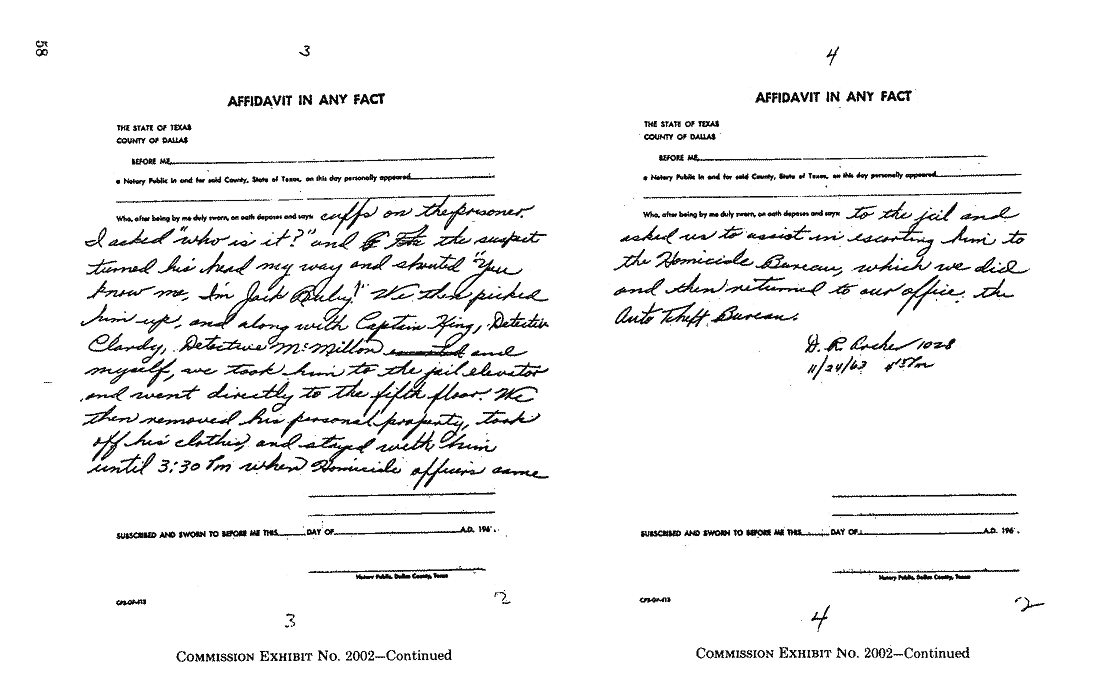 58
3
AFFIDAVIT IN ANY FACT
THE STATE OF TEXAS
COUNTY OF DALLAS
BEFORE ME,
a Notary Public in and for said County, State of Texas, on this day personally appeared
Who, after being by me duly sworn, on oath deposes and says: cuffs on the prisoner.
I asked "who is it?" and the suspect
turned his head my way and shouted "You
know me, I'm Jack Ruby!" We then picked
him up, and along with Captain King, Detective
Clardy, Detective McMillon and
myself, we took him to the jail elevator
and went directly to the fifth floor. We
then removed his personal property, took
off his clothes, and stayed with him
until 3:30 Pm when Homicide officers came
SUBSCRIBED AND SWORN TO BEFORE ME THIS DAY OF A.D. 196
Notary Public, Dallas County, Texas
CPS-GP-413
2
3
COMMISSION EXHIBIT No. 2002—Continued
4
AFFIDAVIT IN ANY FACT
THE STATE OF TEXAS
COUNTY OF DALLAS
BEFORE ME,
a Notary Public in and for said County, State of Texas, on this day personally appeared
Who, after being by me duly sworn, on oath deposes and says: to the jail and
asked us to assist in escorting him to
the Homicide Bureau, which we did
and then returned to our office, the
Auto Theft Bureau.
D. R. Archer 1028
11/24/63
SUBSCRIBED AND SWORN TO BEFORE ME THIS DAY OF A.D. 196
Notary Public, Dallas County, Texas
CPS-GP-413
2
4
COMMISSION EXHIBIT No. 2002—Continued